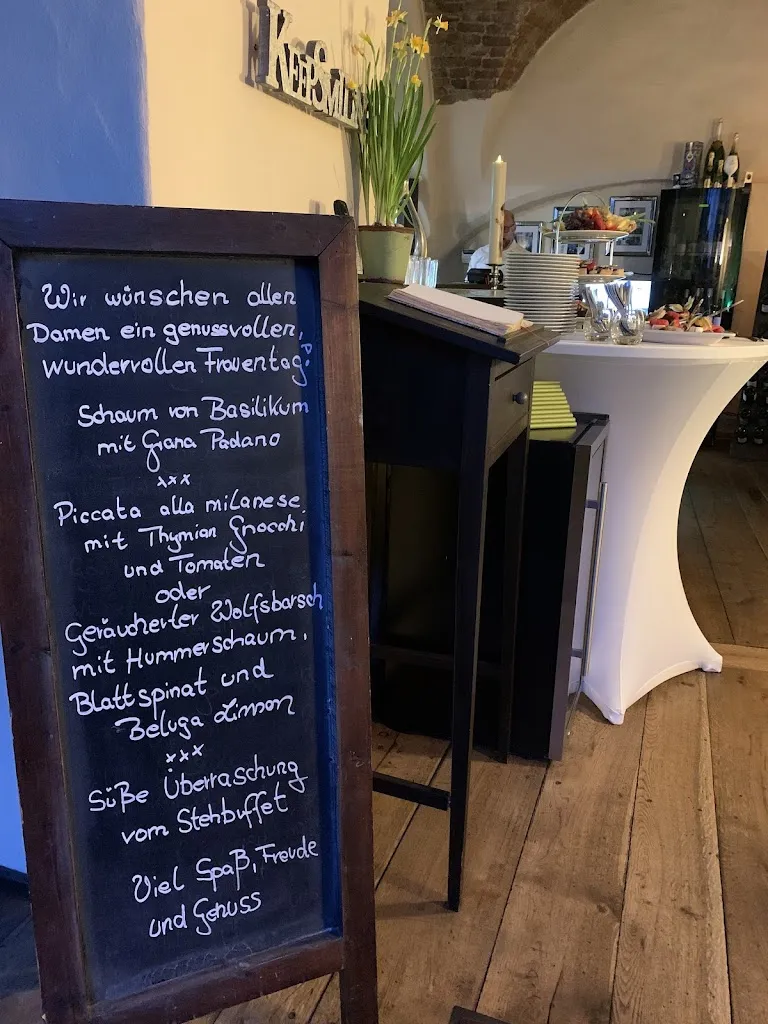 KEEP SMILI
Wir wünschen allen
Damen ein genussvollen,
wundervollen Frauentag.
Schaum von Basilikum
mit Grana Padano
xxx
Piccata alla milanese
mit Thymian Gnocchi
und Tomaten
oder
Geräucherter Wolfsbarsch
mit Hummerschaum,
Blattspinat und
Beluga Linson
xxx
Süße Überraschung
vom Stehbuffet
Viel Spaß, Freude
und Genuss